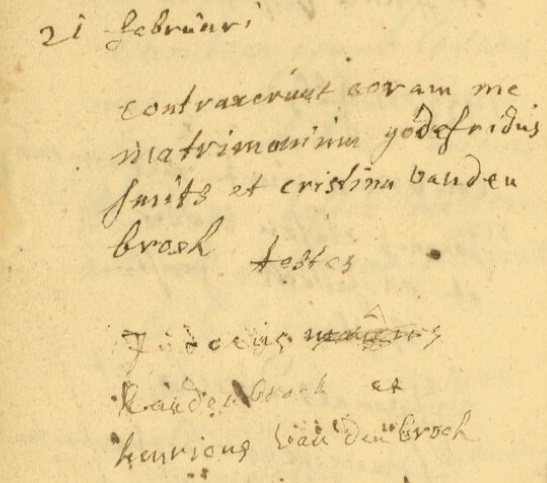 21 februari
contraxerunt coram me
matrimonium godefridus
smits et cristina vanden
broek
testes
Judocus
vanden broek et
henricus van den broek